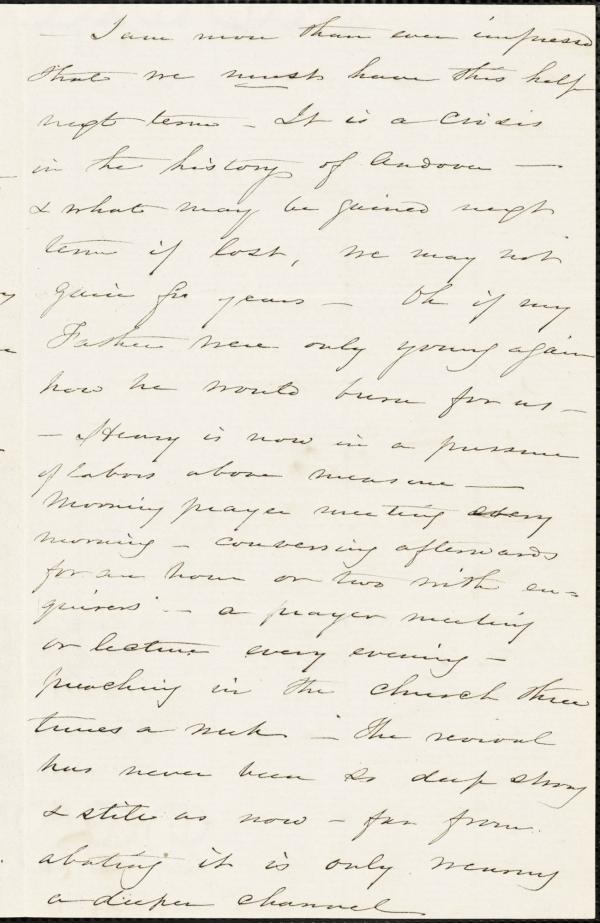 — I am more than ever impressed
that we must have this help
next term — It is a crisis
in the history of Andover —
& what may be gained next
term if lost, we may not
gain for years — Oh if my
Father were only young again
how he would burn for us —
— Henry is now in a pressure
of labors above measure —
Morning prayer meeting every
morning — conversing afterwards
for an hour or two with en=
quirers — a prayer meeting
or lecture every evening —
preaching in the church three
times a week — The revival
has never been so deep strong
& still as now — far from
abating it is only wearing
a deeper channel